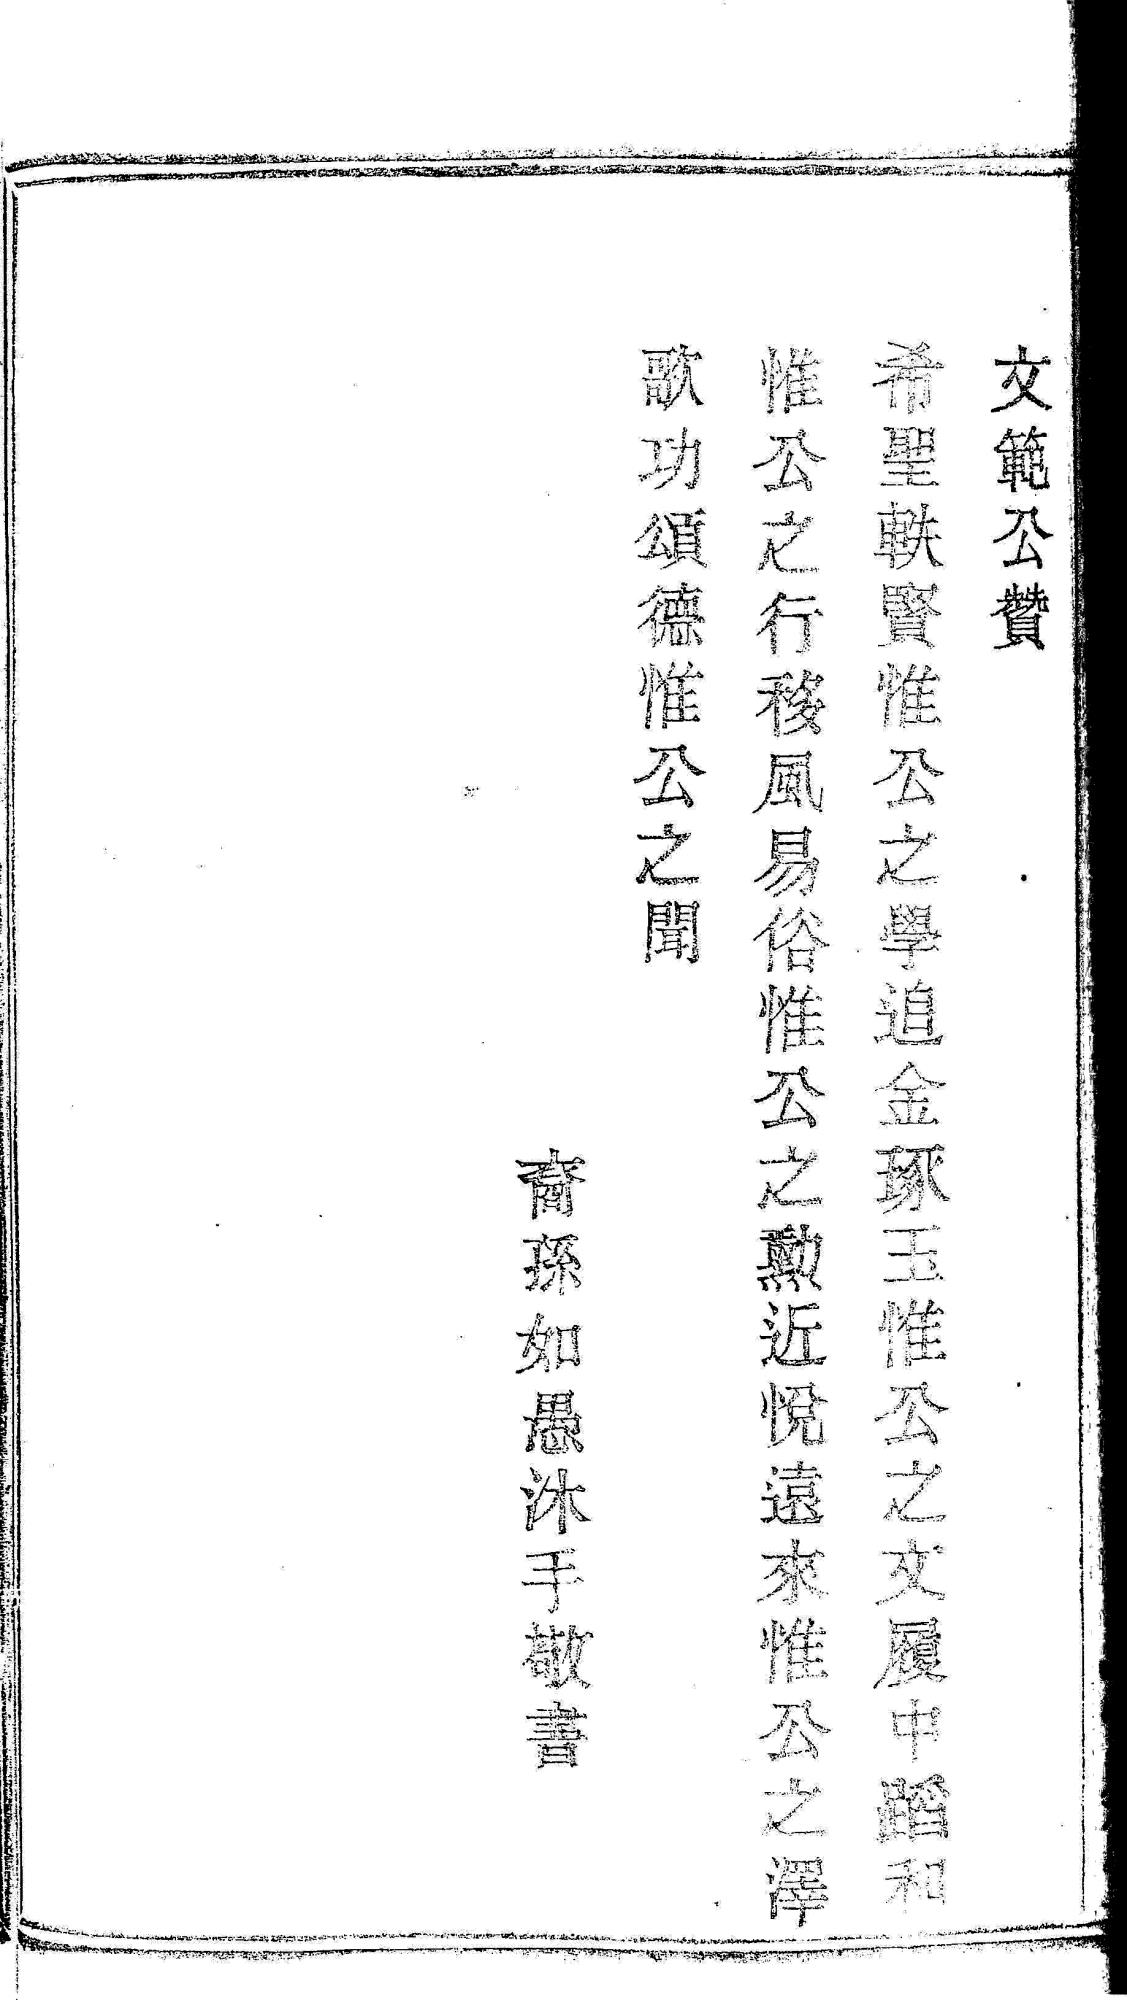 文範公贊
希聖軼賢惟公之學追金琢玉惟公之文履中蹈和
惟公之行移風易俗惟公之勳近悅遠來惟公之澤
歌功頌德惟公之聞
裔孫如愚沐手敬書